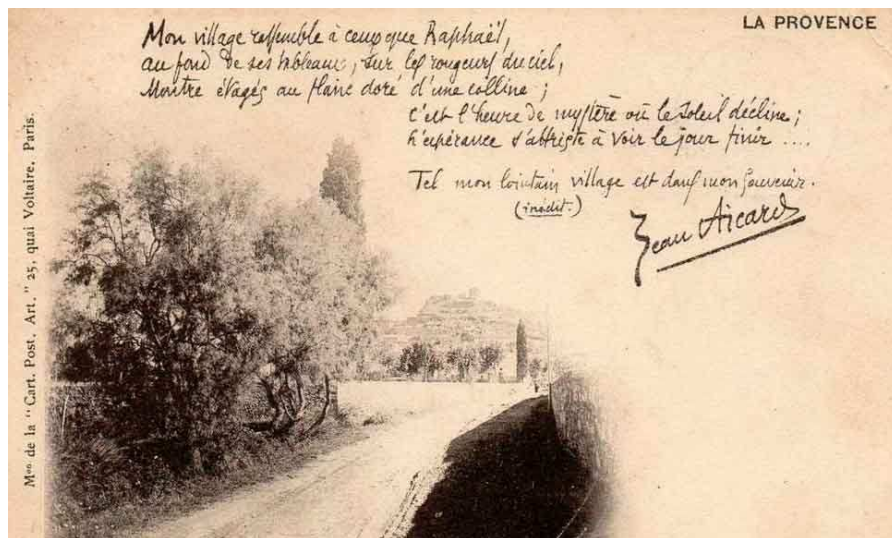 LA PROVENCE
Mon village ressemble à ceux que Raphaël,
au fond de ses tableaux, sur les rougeurs du ciel,
Montre étagés au flanc doré d'une colline ;
C'est l'heure de mystère où le soleil décline ;
L'espérance s'attriste à voir le jour finir ....
Tel mon lointain village est dans mon souvenir.
(inédit.)
Jean Aicard
Mon de la "Cart. Post. Art." 25, quai Voltaire, Paris.